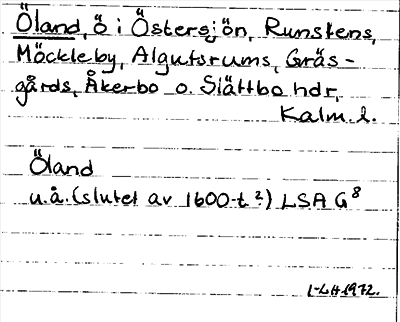 Öland, ö i Östersjön, Runstens,
Möckleby, Algutsrums, Gräs-
gårds, Åkerbo o. Slättbo hdr,
Kalm. l.
Öland
u.å. (slutet av 1600-t ?) LSA G8
L-LH 1972.